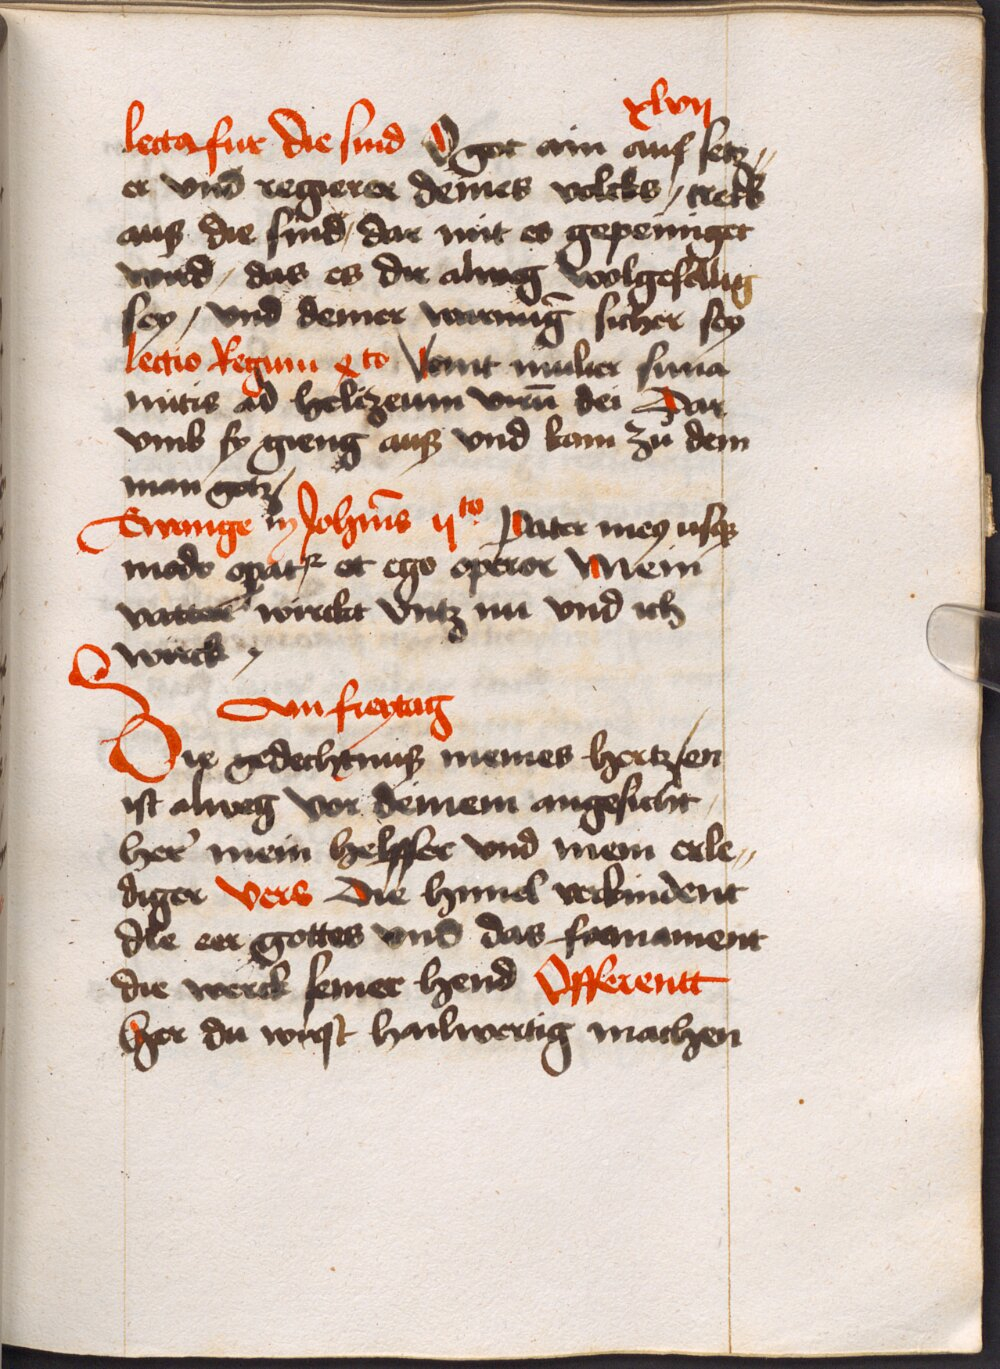 xlvii
lecta fur die sind O got ain auf setz〃
er vnd regierer deines volcks / treib
aus die sind / dar mit es gepeiniget
wird / das es dir alweg wolgefellig
sey / vnd deiner warnung̃ sicher sey
lectio Regum 4to Venit mulier suna
mitis ad helizeum virũ dei Dar
vmb sy gieng aus vnd kam zů dem
man gotz
Ewange ꝫ Johañis iito Pater meꝯ usqꝫ
modo opat̄ꝛ et ego operor Mein
vatter wirckt vntz nu vnd ich
wirck
Am freytag
Die gedechtnuß meines hertzen
ist alweg vor deinem angesicht
her mein helffer vnd mein erle〃
diger Vers Die himel verkindent
die eer gottes vnd das formament
die werck seiner hend Offerentt
her du wirst hailwertig machen